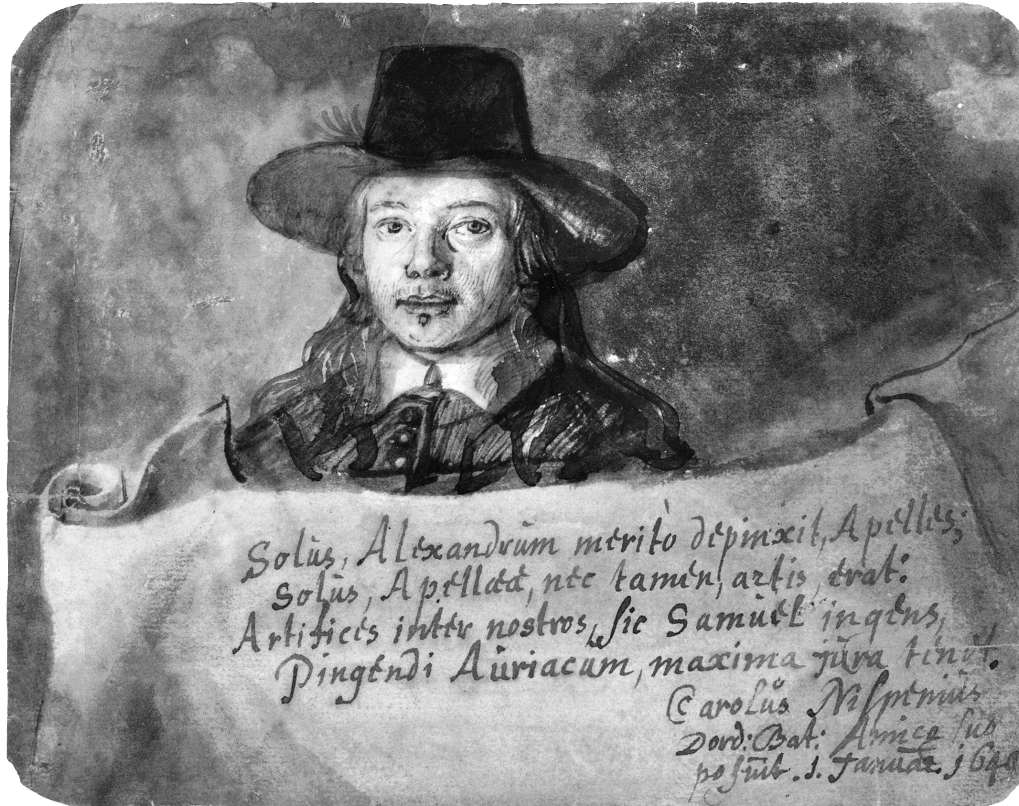 Solùs, Alexandrùm meritò depinxit, Apelles;
Solùs, Apellææ, nec tamen, artis erat:
Artifices inter nostros, sic Samùel ingens,
Pingendi Aùriacùm, maxima jùra tenùit.
Carolùs Nispeniùs
Dord: Bat: Amico sùo
posùit .1. Janùar.